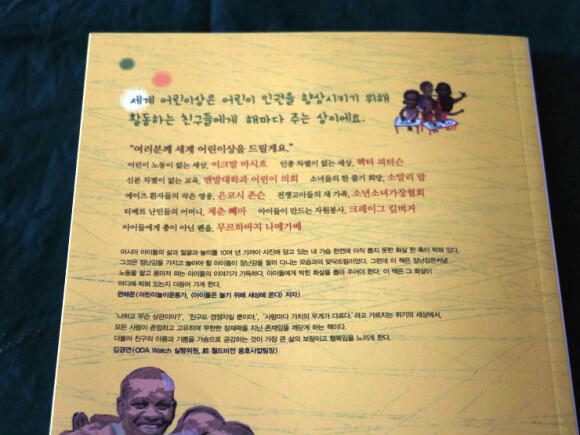 세계 어린이상은 어린이 인권을 향상시키기 위해
활동하는 친구들에게 해마다 주는 상이에요.
"여러분께 세계 어린이상을 드릴게요."
어린이 노동이 없는 세상, 이크발 마시흐 인종 차별이 없는 세상, 헥터 피터슨
신분 차별이 없는 교육, 맨발대학과 어린이 의회 소녀들의 한 줄기 희망, 소말리 맘
에이즈 환자들의 작은 영웅, 은코시 존슨 전쟁고아들의 새 가족, 소년소녀가장협회
티베트 난민들의 어머니, 체춘 뻬마 아이들이 만드는 자원봉사, 크레이그 킬버거
아이들에게 총이 아닌 펜을, 무르하바지 나메가베
아시아 아이들의 삶과 얼굴과 놀이를 10여 년 가까이 사진에 담고 있는 내 가슴 한켠에 아직 뽑지 못한 화살 한 촉이 박혀 있다.
그것은 장난감을 가지고 놀아야 할 아이들이 장난감을 팔러 다니는 모습과의 맞닥뜨림이었다. 그런데 이 책은 장난감은커녕
노동을 팔고 몸마저 파는 아이들의 이야기가 가득하다. 아이들에게 박힌 화살을 뽑아 주어야 한다. 이 책은 그 화살이
어디에 박혀 있는지 더듬어 가게 한다.
편해문(어린이놀이운동가, 《아이들은 놀기 위해 세상에 온다》 저자)
'나하고 무슨 상관이야?', '친구도 경쟁자일 뿐이야', '사람마다 가치의 무게가 다르다.'라고 가르치는 위기의 세상에서,
모든 사람이 존엄하고 고유하며 무한한 잠재력을 지닌 존재임을 깨닫게 하는 책이다.
더불어 친구의 아픔과 기쁨을 가슴으로 공감하는 것이 가장 큰 삶의 보람이고 행복임을 느끼게 한다.
김경연(ODA Watch 실행위원, 前 월드비전 옹호사업팀장)